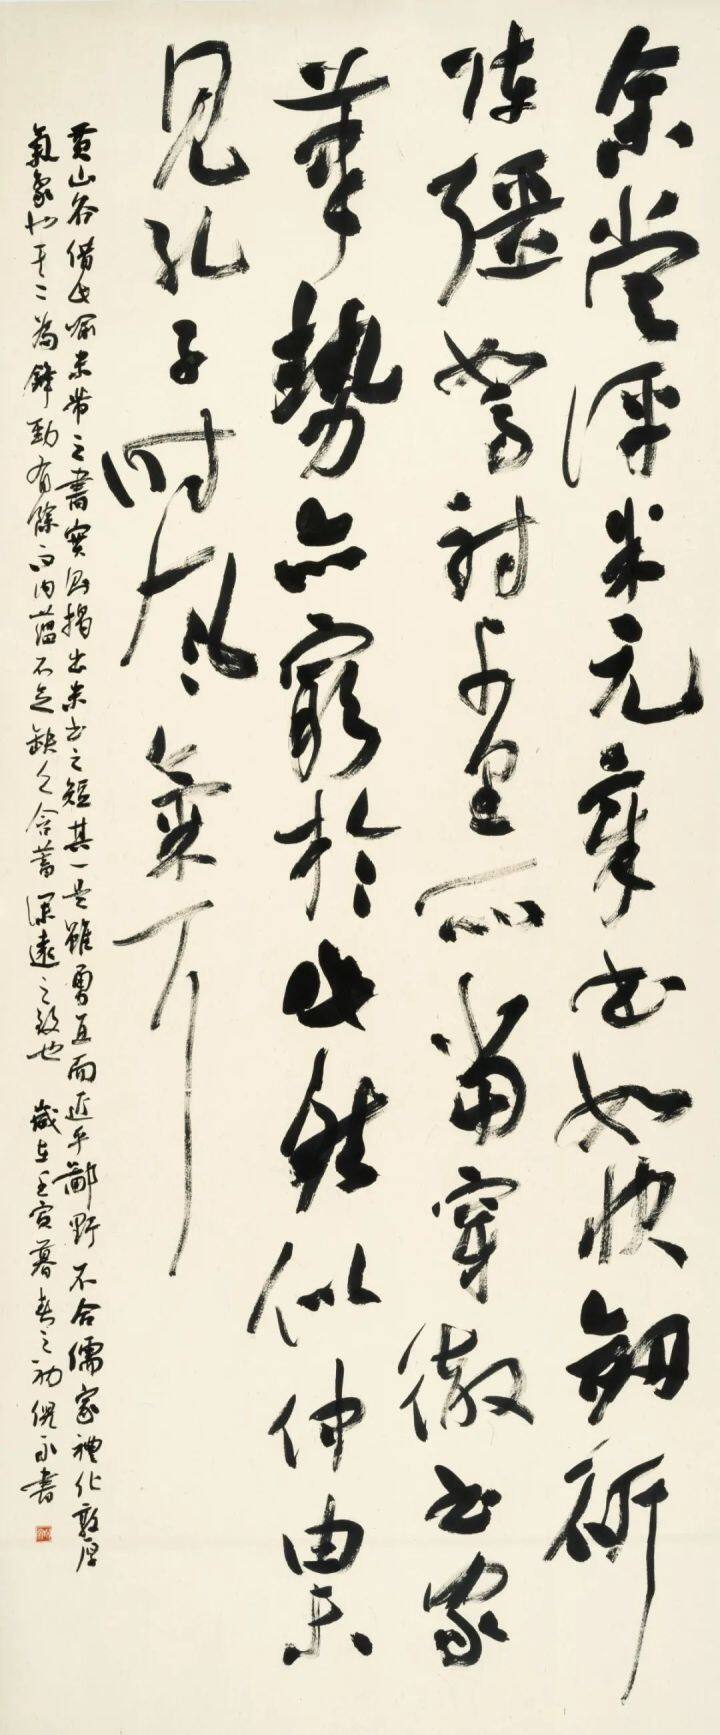 余尝评米元章书如快剑斫
陣彊弩射千里所當穿徹书家
筆勢亦窮於此然似仲由未
見孔子时风氣耳
黄山谷借此喻米芾之書實則揭出米书之短其一是雖勇直而近乎鄙野不合儒家禮化敦厚
氣象也其二為鋒勁有餘而内蕴不足缺乏含蓄深遠之致也 歲在壬寅暮春之初 倪永書